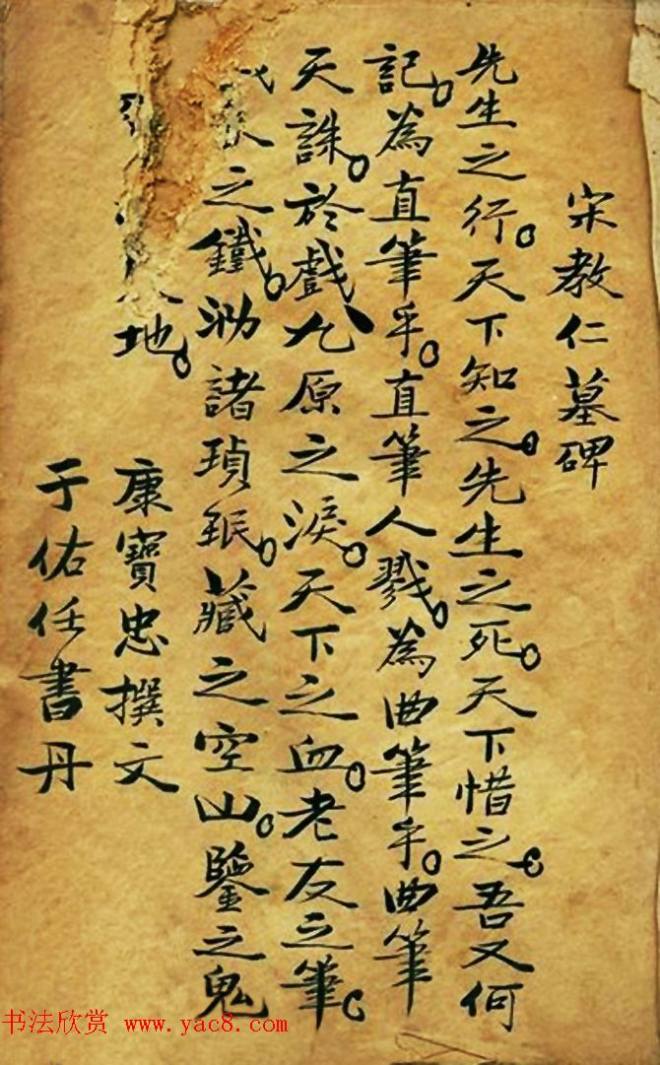 宋教仁墓碑
先生之行。天下知之。先生之死。天下惜之。吾又何
記。為直筆乎。直筆人戮。為曲筆乎。曲筆
天誅。於戲九原之淚。天下之血。老友之筆。
之鐵。泐諸瑱珉。藏之空山。鑒之鬼
地。
康寶忠撰文
于佑任書丹
书法欣赏 www.yac8.com